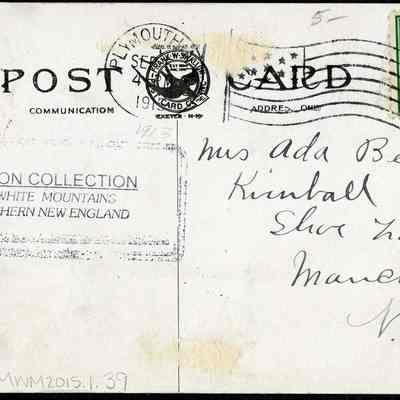 5-
PLYMOUTH
SEP
4
191
POST CARD
COMMUNICATION
ADDRESS ONLY
EXETER-N-H
1913
Mrs Ada Be
Kimball
Shoe
Manc
N.
ON COLLECTION
WHITE MOUNTAINS
HERN NEW ENGLAND
MWM2015.1.39